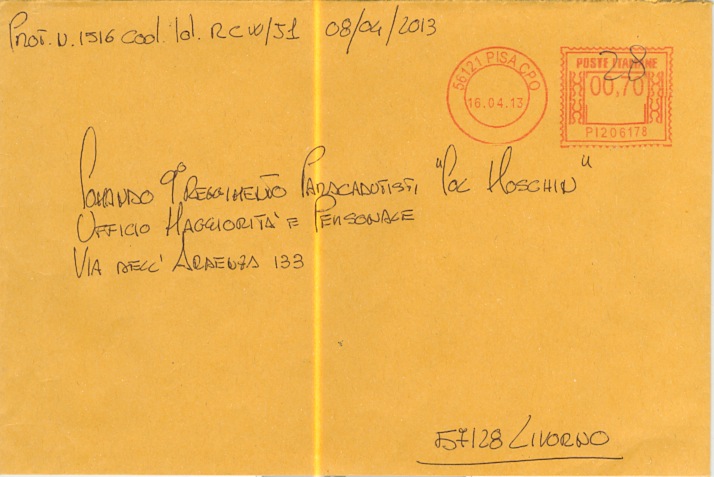 PROT. N. 1516 Cod. Id. RCW/51 08/04/2013
56121 PISA CPO
16.04.13
POSTE ITALIANE
28
00,70
PI206178
COMANDO 9° REGGIMENTO PARACADUTISTI "COL MOSCHIN"
UFFICIO MAGGIORITÀ E PERSONALE
VIA DELL' ARDENZA 133
57128 LIVORNO